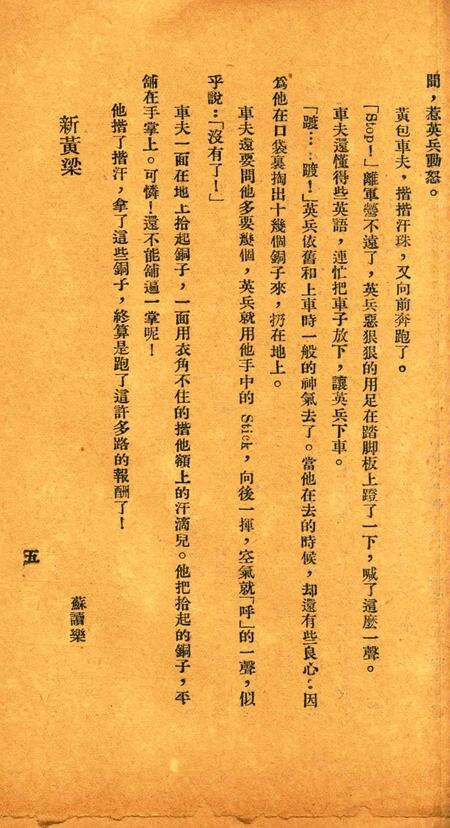 間，惹英兵動怒。
黃包車夫，揩揩汗珠，又向前奔跑了。
「Stop！」離軍營不遠了，英兵惡狠狠的用足在踏脚板上蹬了一下，喊了這麽一聲。
車夫還懂得些英語，連忙把車子放下，讓英兵下車。
「踱…踱！」英兵依舊和上車時一般的神氣去了。當他在去的時候，却還有些良心：因
爲他在口袋裏掏出十幾個銅子來，扔在地上。
車夫還要問他多要幾個，英兵就用他手中的 Stick，向後一揮，空氣就「呼」的一聲，似
乎說：「沒有了！」
車夫一面在地上拾起銅子，一面用衣角不住的揩他額上的汗滴兒。他把拾起的銅子，平
舖在手掌上。可憐！還不能舖逼一掌呢！
他揩了揩汗，拿了這些銅子，終算是跑了這許多路的報酬了！
新黃梁
蘇讀樂
五